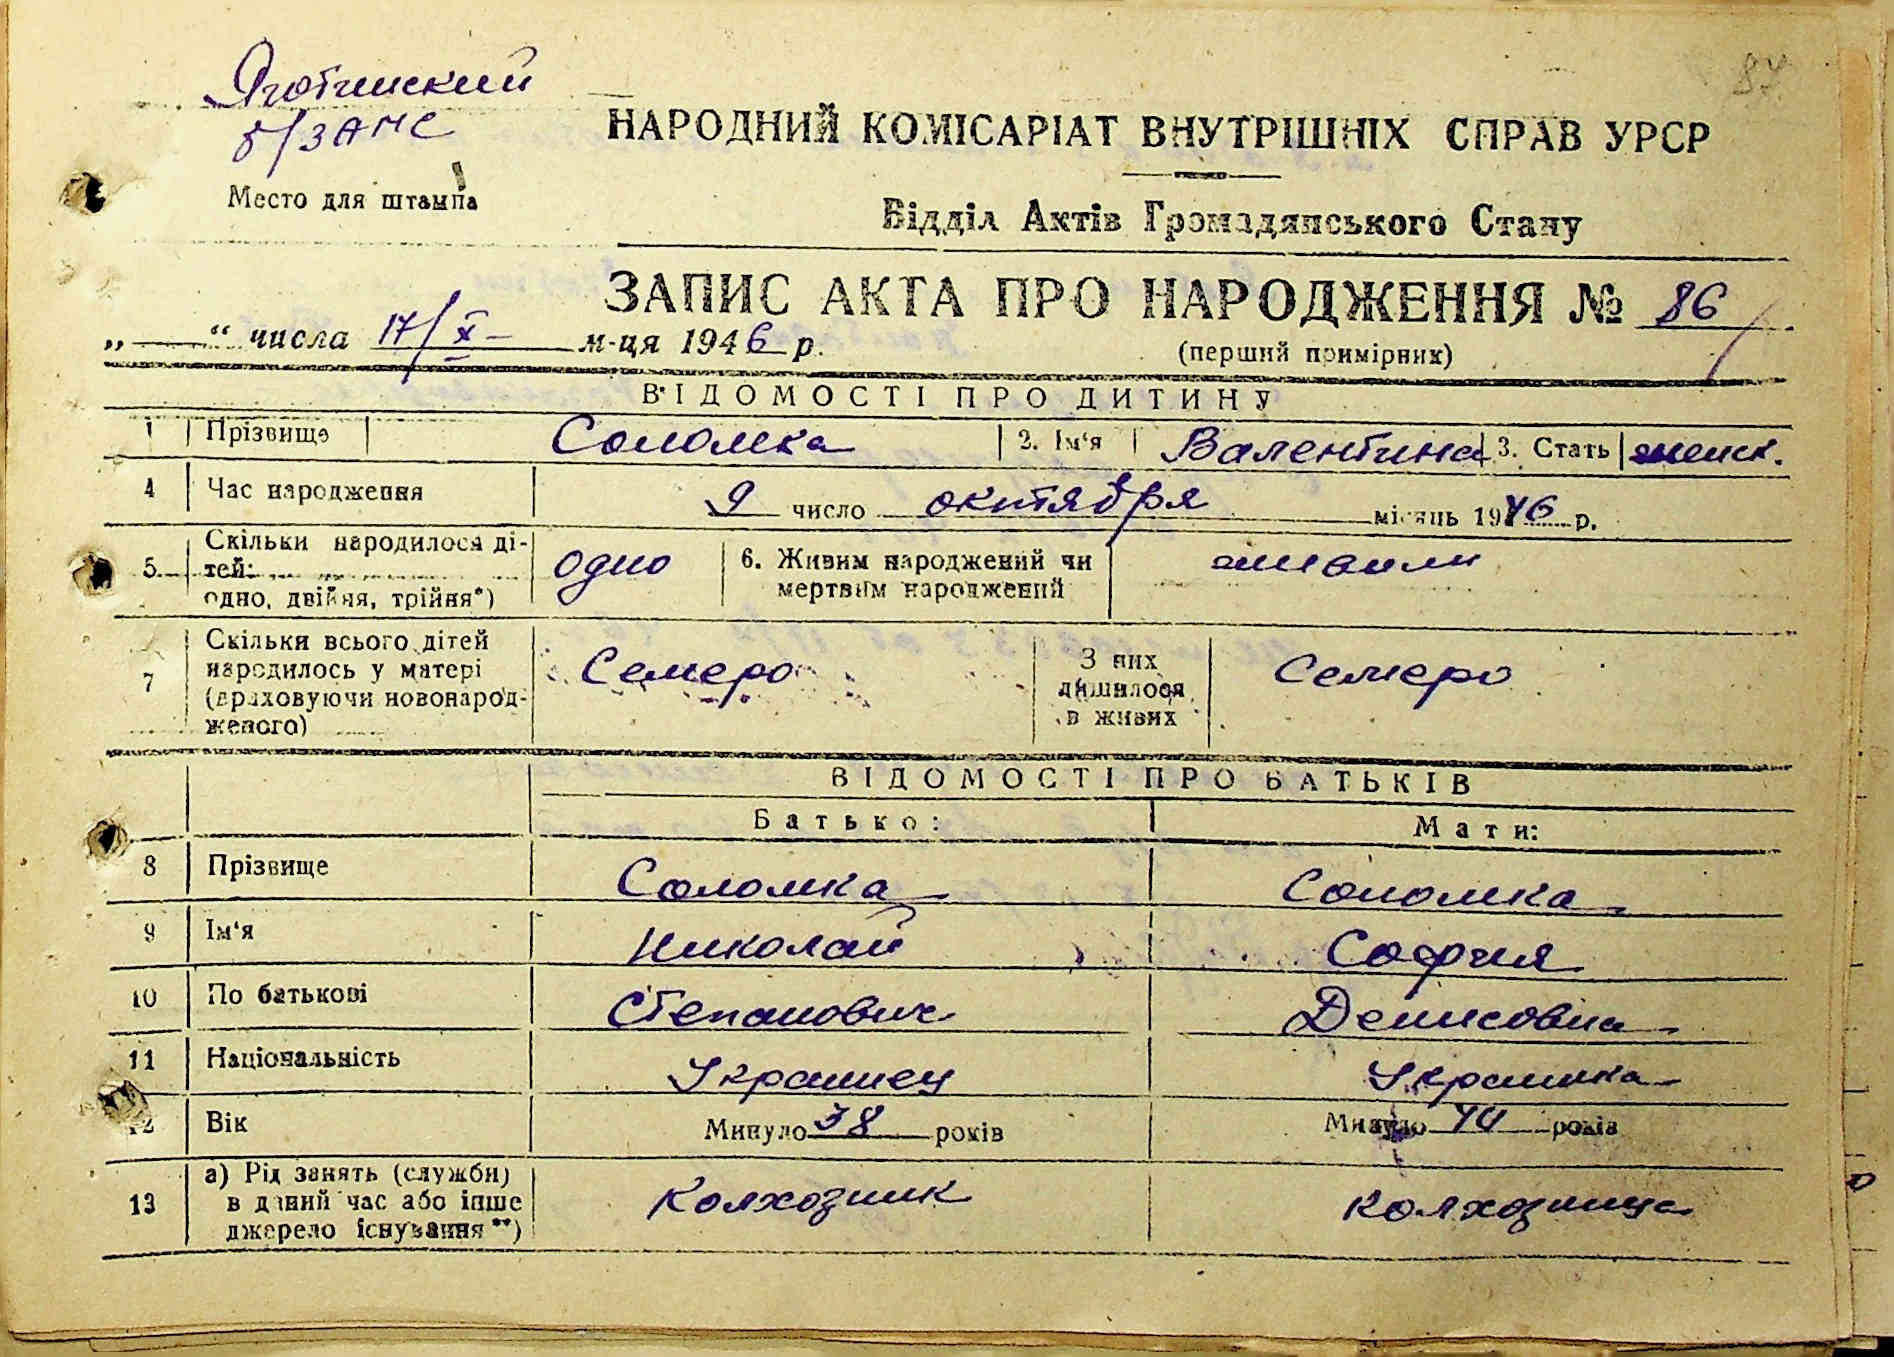 87
Яготинский
б/ЗАГС
Место для штампа
НАРОДНИЙ КОМІСАРІАТ ВНУТРІШНІХ СПРАВ УРСР
Відділ Актів Громадянського Стану
ЗАПИС АКТА ПРО НАРОДЖЕННЯ № 86
„ — “ числа 17/X м-ця 1946 р.
(перший примірник)
ВІДОМОСТІ ПРО ДИТИНУ
1 Прізвище Соломка 2. Ім‘я Валентина 3. Стать женск.
4 Час народження 9 число октября місяць 1946 р.
5. Скільки народилося ді-
тей:
одно, двійня, трійня*) одно 6. Живим народжений чи
мертвим народжений живым
7 Скільки всього дітей
народилось у матері
(враховуючи новонарод-
женого) Семеро З них
лишилося
в живих Семеро
ВІДОМОСТІ ПРО БАТЬКІВ
Батько: Мати:
8 Прізвище Соломка Соломка
9 Ім‘я Николай София
10 По батькові Степанович Денисовна
11 Національність Украинец Украинка
12 Вік Минуло 38 років Минуло 40 років
13 а) Рід занять (служби)
в даний час або інше
джерело існування**) Колхозник Колхозница